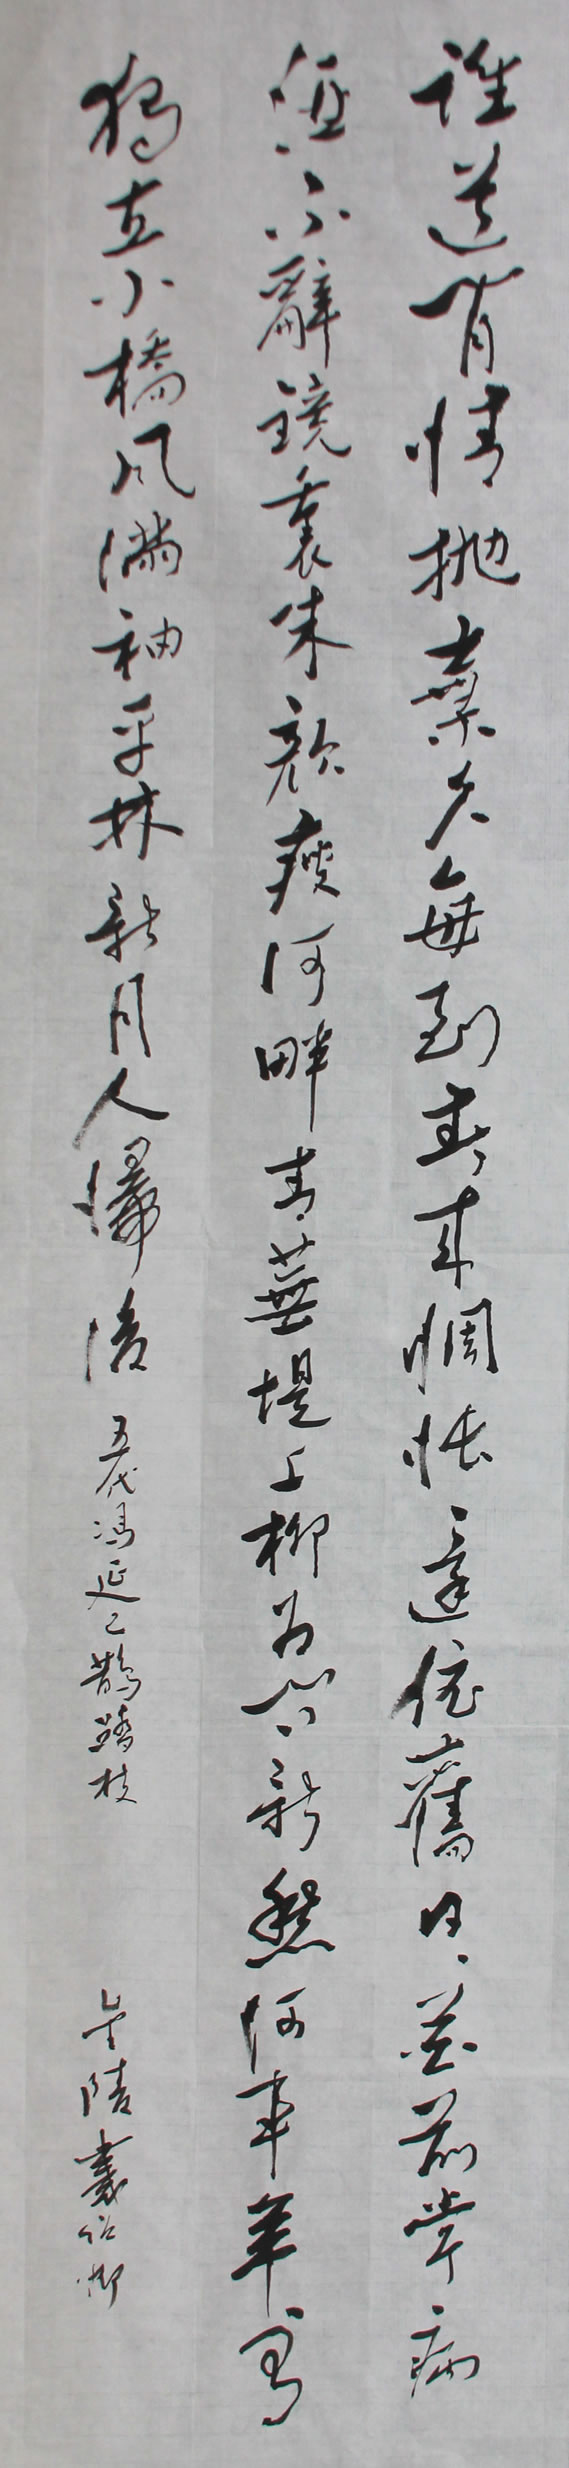 誰道閒情抛棄久每到春來惆悵還依舊日々花前常病
酒不辭鏡裏朱顏瘦河畔青蕪堤上柳為問新愁何事年々有
獨立小橋風滿袖平林新月人歸後 五代馮延巳鵲踏枝 金陵